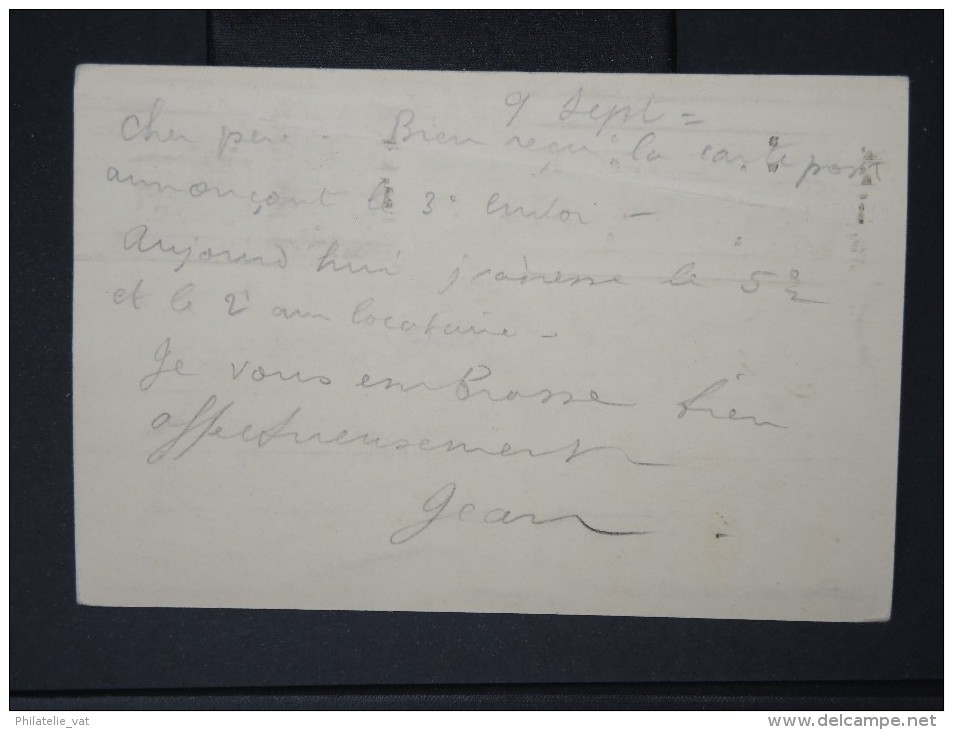 9 Sept =
Cher père. Bien reçu la carte post
annonçant le 3e envoi -
Aujourd hui j'adresse le 5e
et le 2 au locataire -
Je vous embrasse bien
affectueusement
Jean
Philatelie_vat
www.delcampe.net